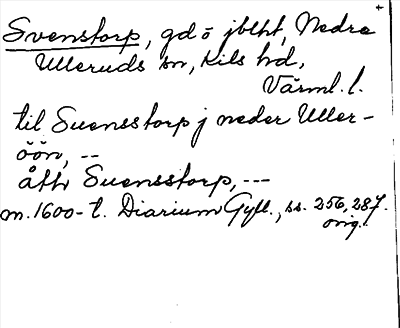 Svenstorp, gd o jblht, Nedre
Ulleruds sn, Kils hd,
Värml. l.
til Suensstorp j neder Uller-
öön, --
åth Suensstorp, ---
m. 1600-t. Diarium Gyll., ss. 256, 287.
orig.